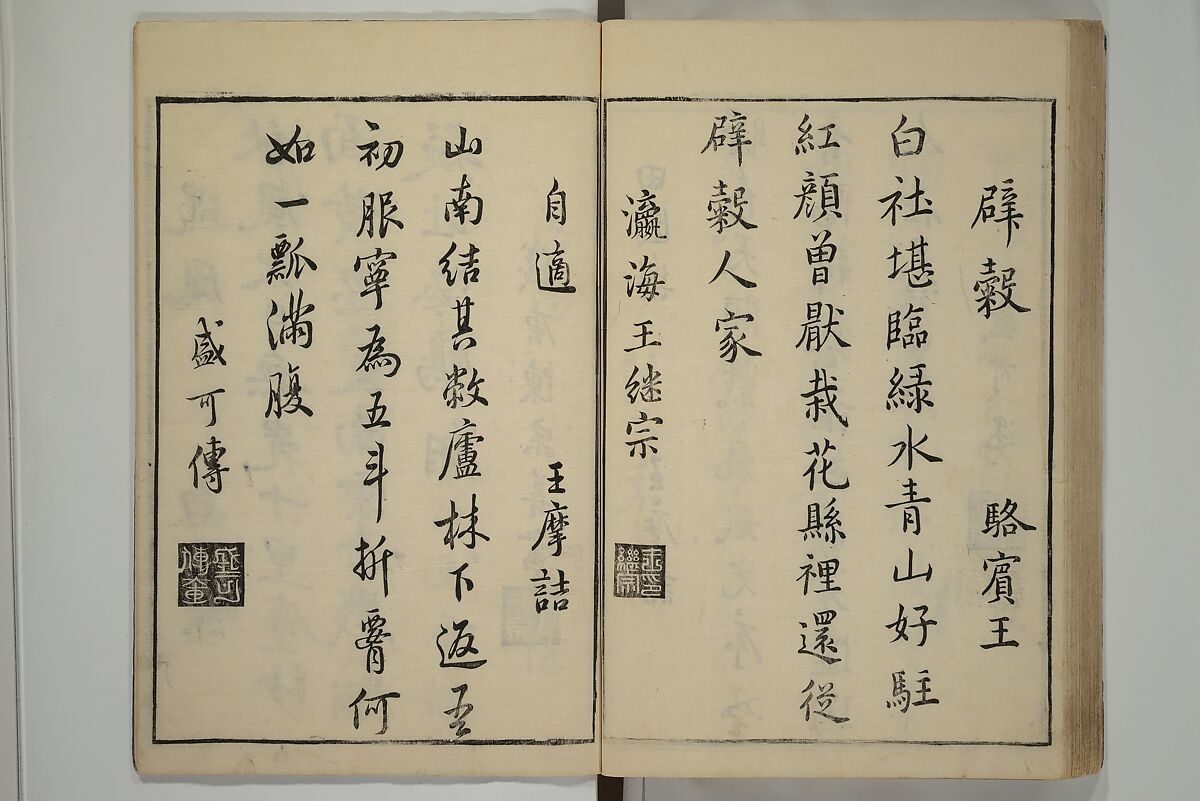 辟穀 駱賓王
白社堪臨緑水青山好駐
紅顔曽厭栽花縣裡還従
辟穀人家
瀛海王継宗
王印継宗
自適 王摩詰
山南結其敝廬林下返吾
初服寧為五斗折腰何
如一瓢滿腹
盛可傳
盛可傳